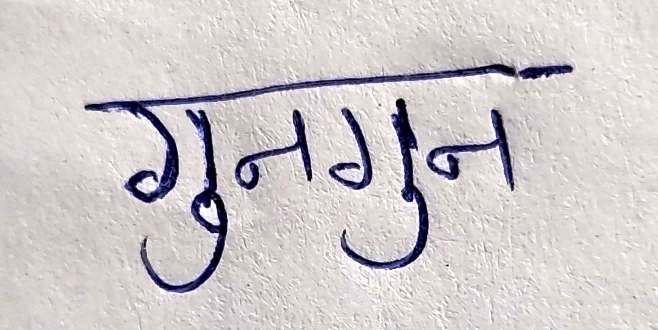 गुनगुन